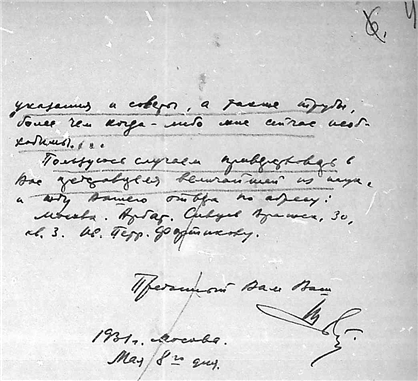 6.
указания и советы, а также труды,
более чем когда-либо мне сейчас необ-
ходимы...
Пользуюсь случаем приветствовать в
Вас представителя величайшей из наук,
и жду Вашего ответа по адресу:
Москва. Арбат. Сивцев Вражек, 30,
кв. 3. Ив. Петр. Фортикову.
Преданный Вам Ваш
1931 г. Москва.
Мая 8го дня.